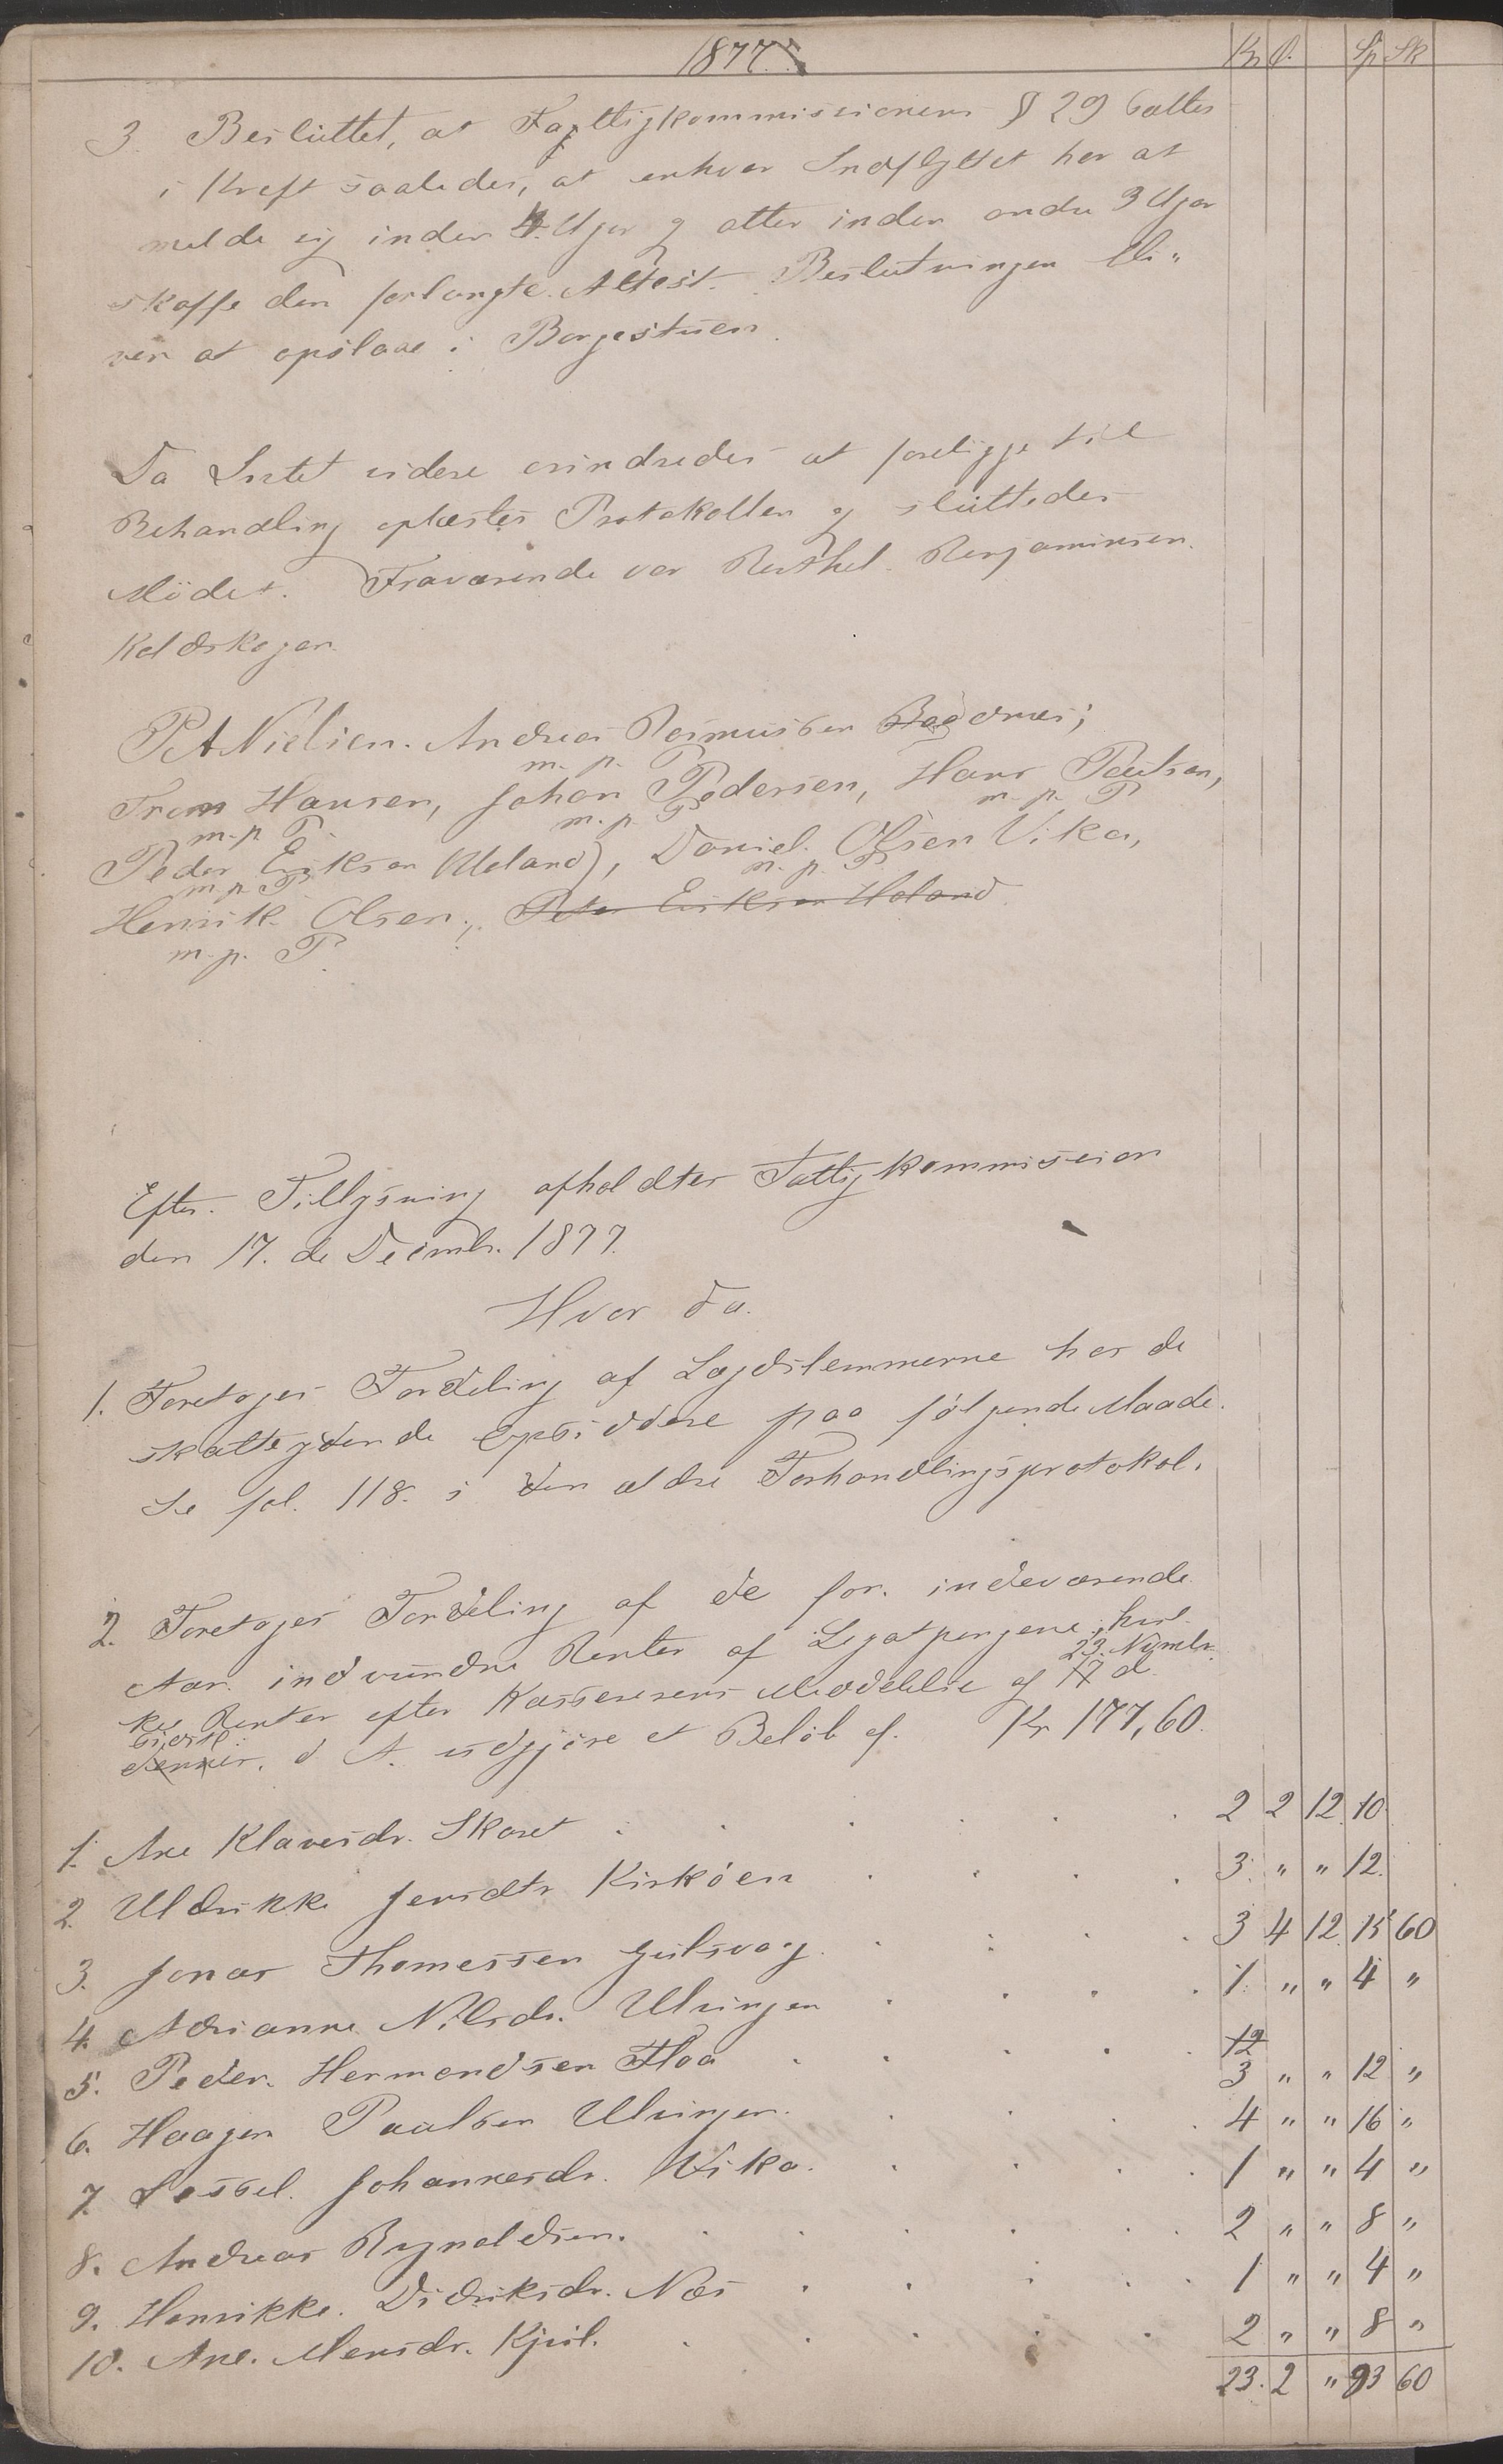 1877
Kr Ø. Sp Sk
3. Besluttet, at Fattigkommissionens § 29 sættes
i Kraft saaledes, at enhver Indflyttet har at
melde sig inden 4. Uger og atter inden andre 3 Uger
skaffe den forlangte Attest. Beslutningen bli-
ver at opslaae i Borgestuen.
Da Intet videre erindredes at foreligge til
Behandling oplæstes Protokollen og sluttedes
Mödet. Fraværende var Berthel Benjaminsen
Koldskogen.
P A Nielsen. Andreas Rasmussen
m. p. P
Hansen, Johan Pedersen, Hans Paulsen,
m. p P. m. p. P m. p. P
Peder Eriksen Meland, Daniel Olsen Vika,
m. p. P m. p. P
Henrik Olsen, Peter Eriksen Holand
m. p. P
Efter Tillysning afholdtes Fattigkommission
den 17. de Decmbr. 1877.
Hvor da.
1. Foretoges Fordeling af Lægdslemmerne hos de
skatteydende Opsiddere paa følgende Maade.
Se fol. 118. i den ældre Forhandlingsprotokol.
2. Foretoges Fordeling af de for indeværende
Aar indvundne Renter af Legatpengene, hvil-
23. Nvmbr.
ke Renter efter Kassererens Meddelelse af 17 d
sidstl.
dennes. d. A. udgjöre et Belöb af Kr 177,60.
1. Ane Klausdr. Skaret . . . . . 2 2 12 10
2. Uldrikke Jensdtr Kirköen . . . . 3. " " 12.
3. Jonas Thomessen Gulsvaag . . . . 3 4 12 15 60
4. Adrianna Nilsdr. Ulvingen . . . . 1. " " 4 "
5. Peder Hermandsen Floa . . . . . 12 3 " " 12 "
6. Haagen Paulsen Ulvingen. . . . 4 " " 16 "
7. Sessel. Johannesdr. Vika. . . . . 1 " " 4 "
8. Andreas Rynoldsen. . . . . . . 2 " " 8 "
9. Henrikke. Didriksdr. Næs . . . . 1 " " 4 "
10. Ane. Mensdr. Kjul. . . . . . 2 " " 8 "
23. 2 " 93 60